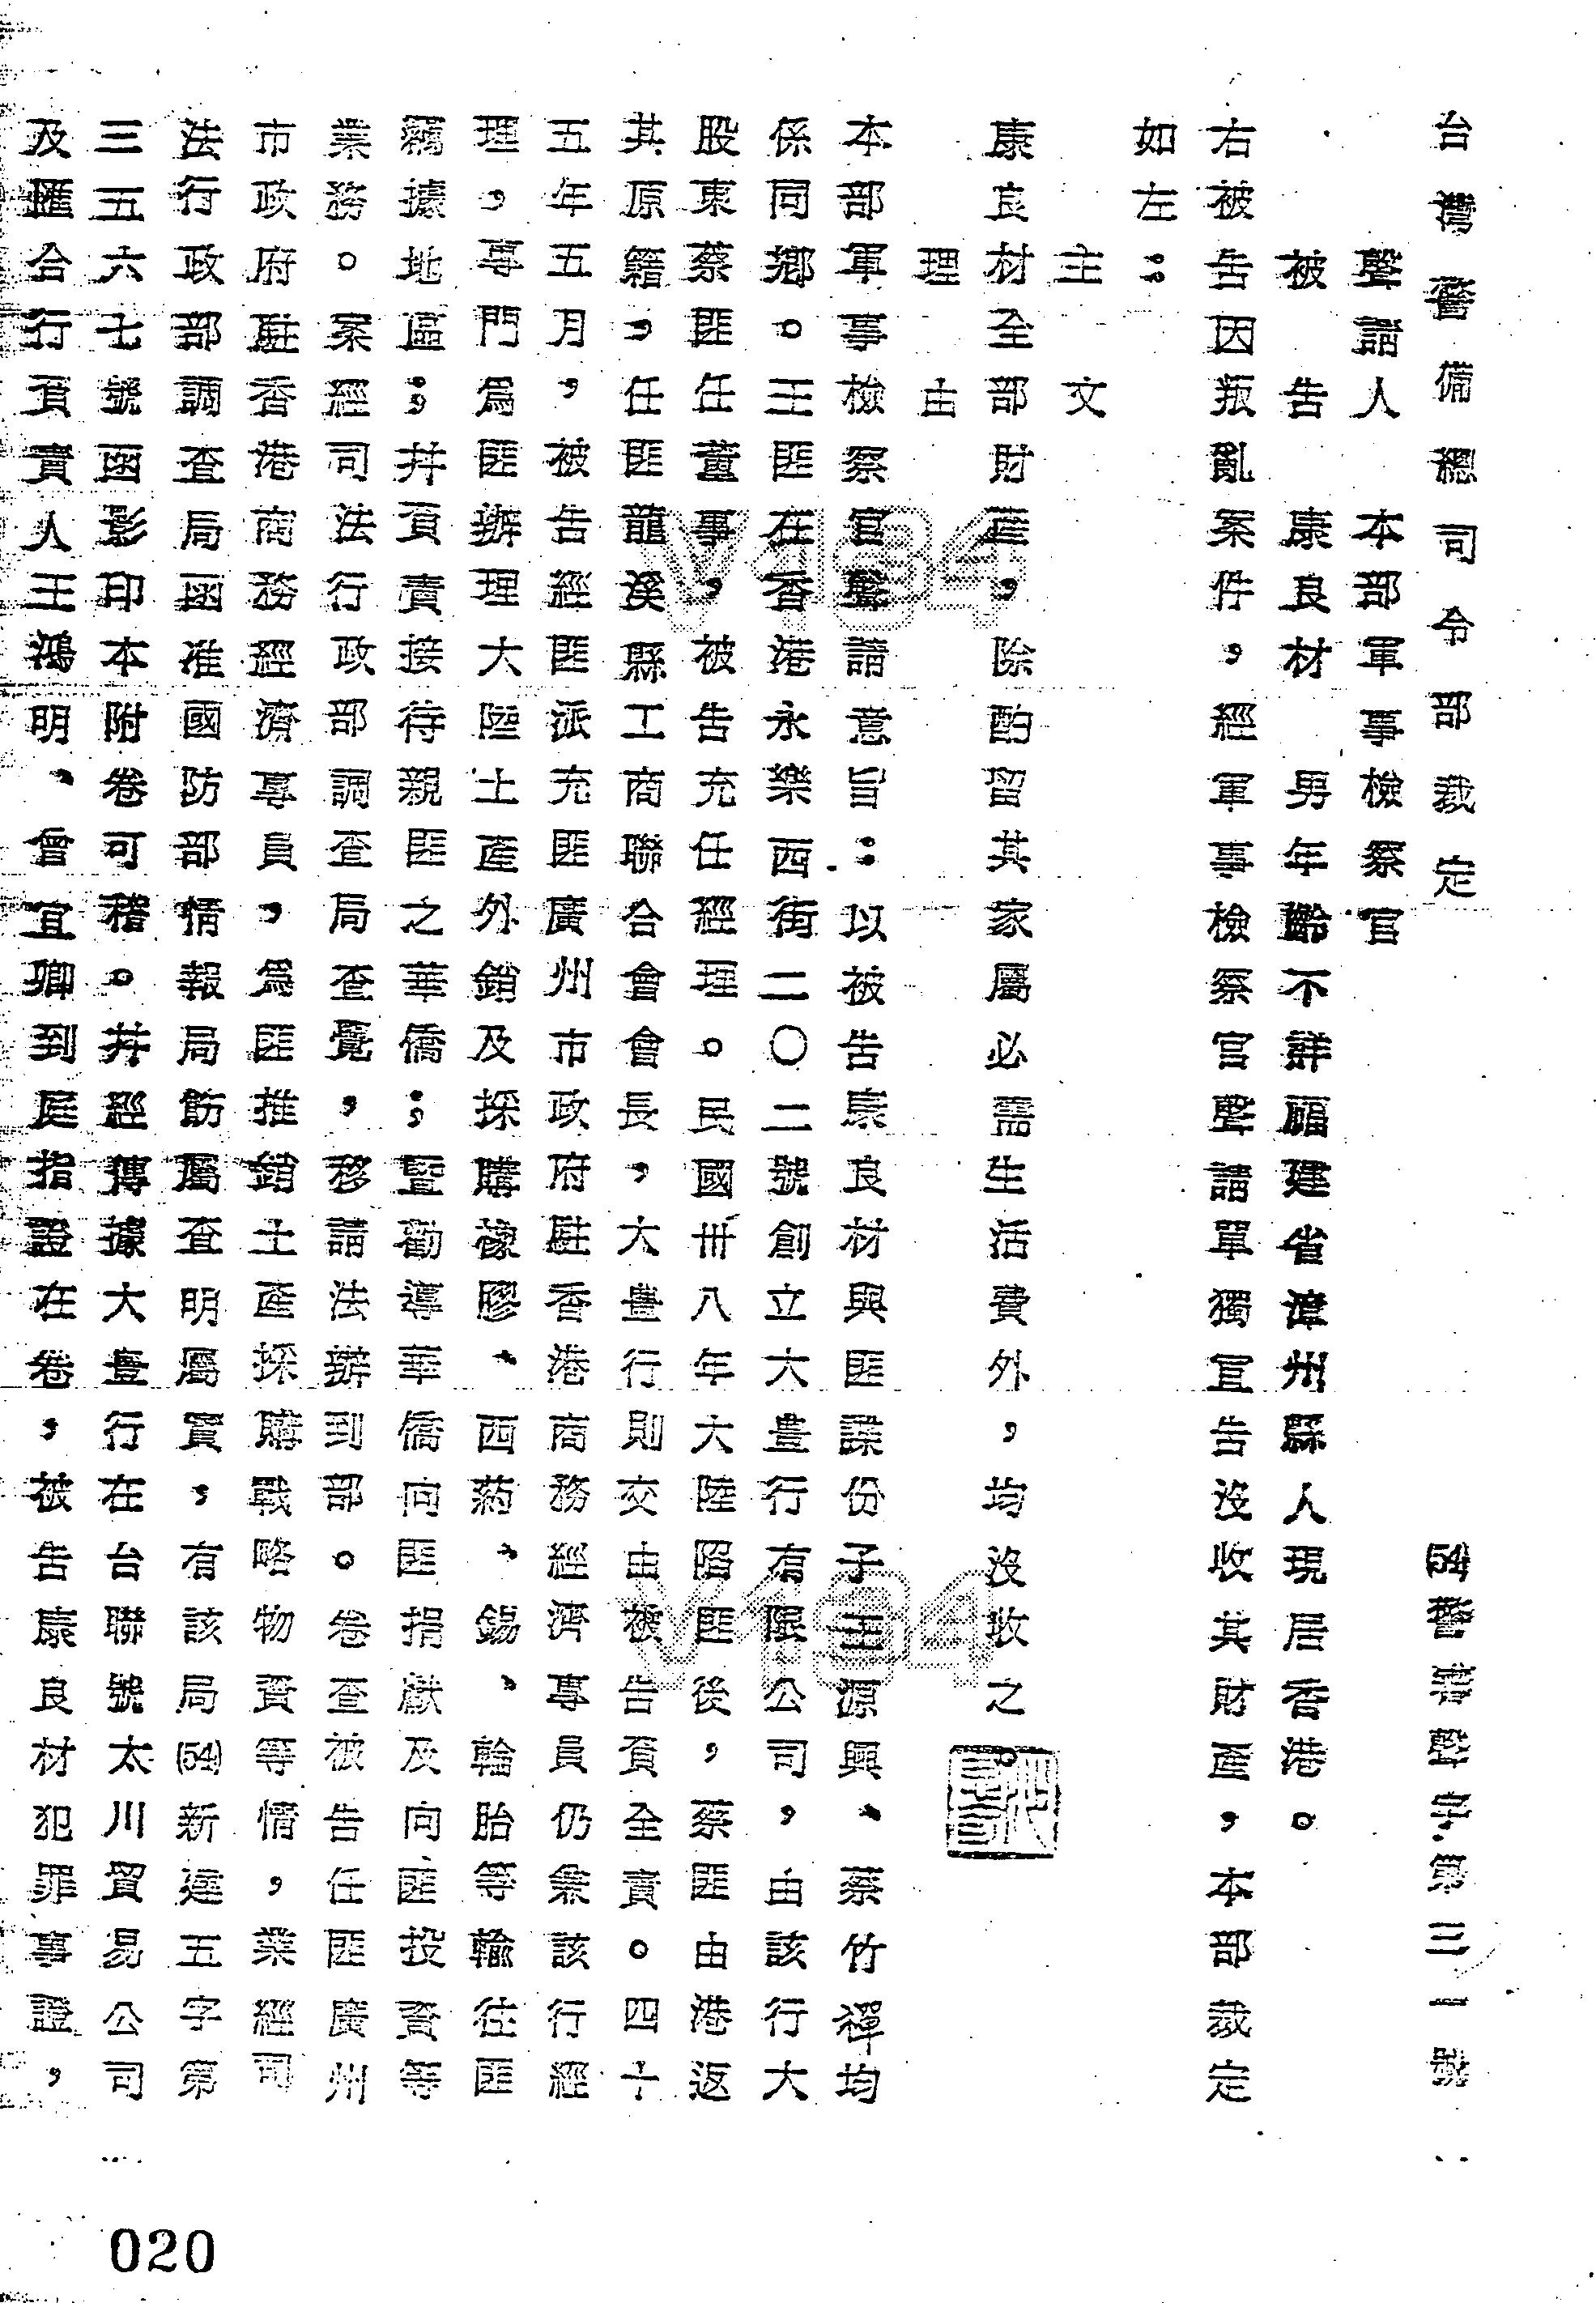 台灣警備總司令部裁定 (54)警審聲字第三一號
聲請人 本部軍事檢察官
被告 康良材 男年齡不詳福建省漳州縣人現居香港。
右被告因叛亂案件，經軍事檢察官聲請單獨宣告沒收其財產，本部裁定
如左：
主文
康良材全部財產，除酌留其家屬必需生活費外，均沒收之。
理由
本部軍事檢察官聲請意旨：以被告康良材與匪諜份子王源興、蔡竹禪均
係同鄉。王匪在香港永樂西街二〇二號創立大豊行有限公司，由該行大
股東蔡匪任董事，被告充任經理。民國卅八年大陸陷匪後，蔡匪由港返
其原籍，任匪龍溪縣工商聯合會會長，大豊行則交由被告負全責。四十
五年五月，被告經匪派充匪廣州市政府駐香港商務經濟專員仍兼該行經
理，專門為匪辦理大陸土產外銷及採購橡膠、西葯、錫、輪胎等輸往匪
竊據地區；并負責接待親匪之華僑；暨勸導華僑向匪捐獻及向匪投資等
業務。案經司法行政部調查局查覺，移請法辦到部。卷查被告任匪廣州
市政府駐香港商務經濟專員，為匪推銷土產採購戰略物資等情，業經司
法行政部調查局函准國防部情報局飭屬查明屬實，有該局(54)新遠五字第
三五六七號函影印本附卷可稽。并經傳據大豊行在台聯號太川貿易公司
及匯合行負責人王鴻明、曾宜卿到庭指證在卷，被告康良材犯罪事證，
020
V194
V194